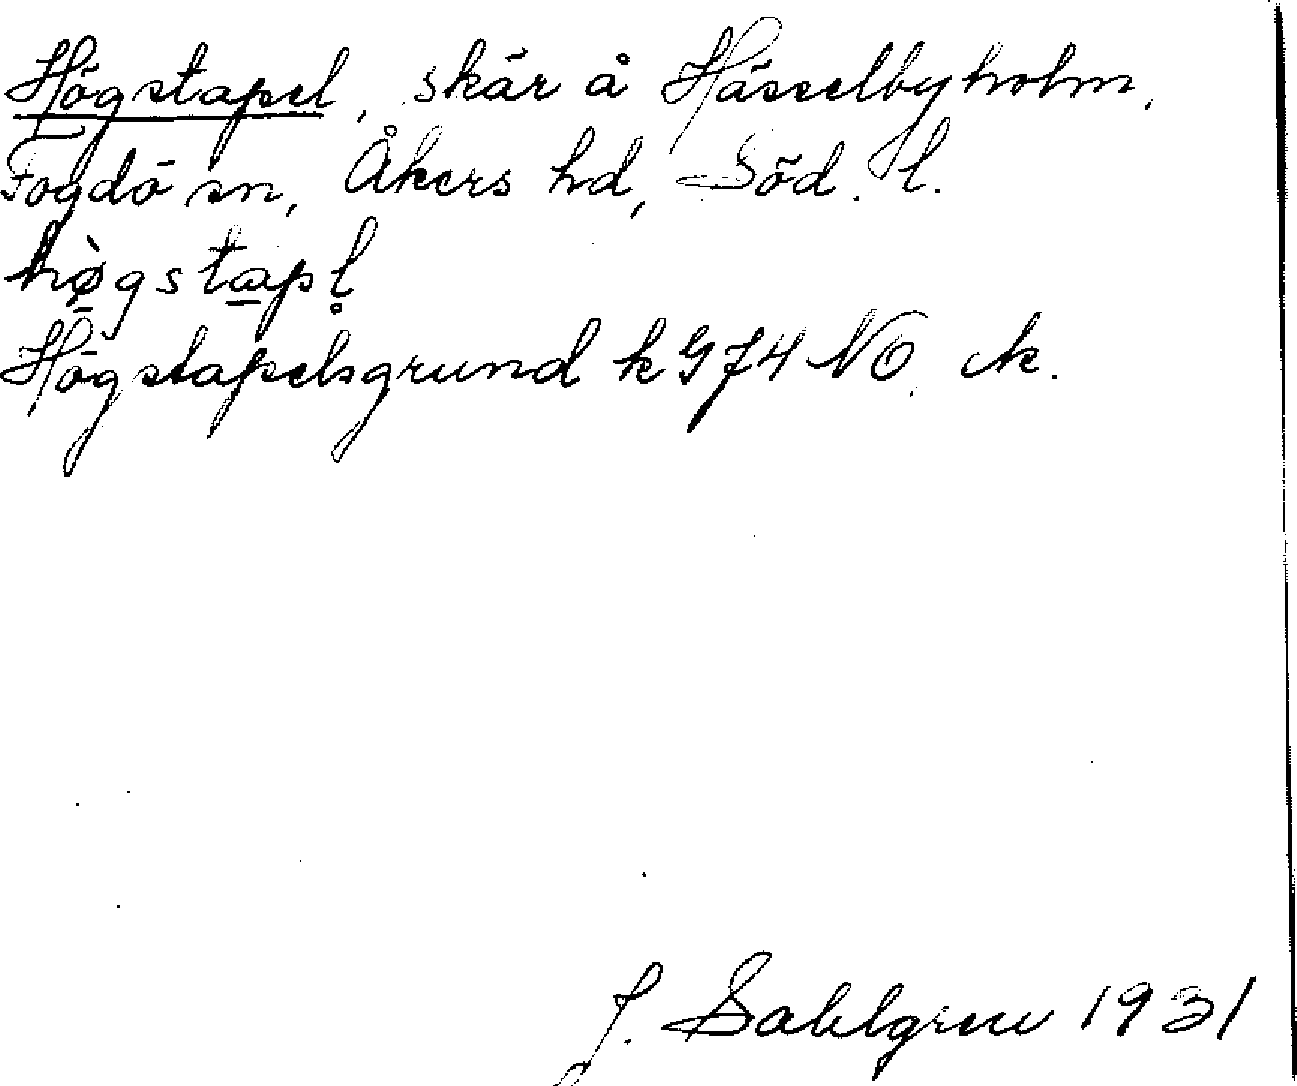 Högstapel, skär å Hässelbyholm,
Fogdö sn, Åkers hd, Söd. l.
hø̀gstapl̥
Högstapelsgrund k 974 NO
J. Sahlgren 1931